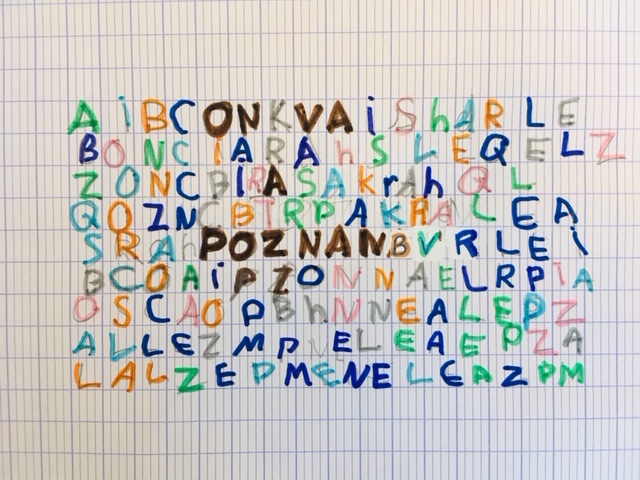 A i B C O N K V A i S h A R L E
B O N C I A R A h S L E Q E L Z
Z O N C B I R A S A K r A h Q L
Q O Z N C B T R P A K R A L E A
S R A P O Z N A N B V R L E i
B C O A i P Z O N N A E L R P I A
O S C A O P B h N N E A L E P Z
A L L E Z M P N E L E A E P Z A
L A L Z E P M E N E L E A Z P M